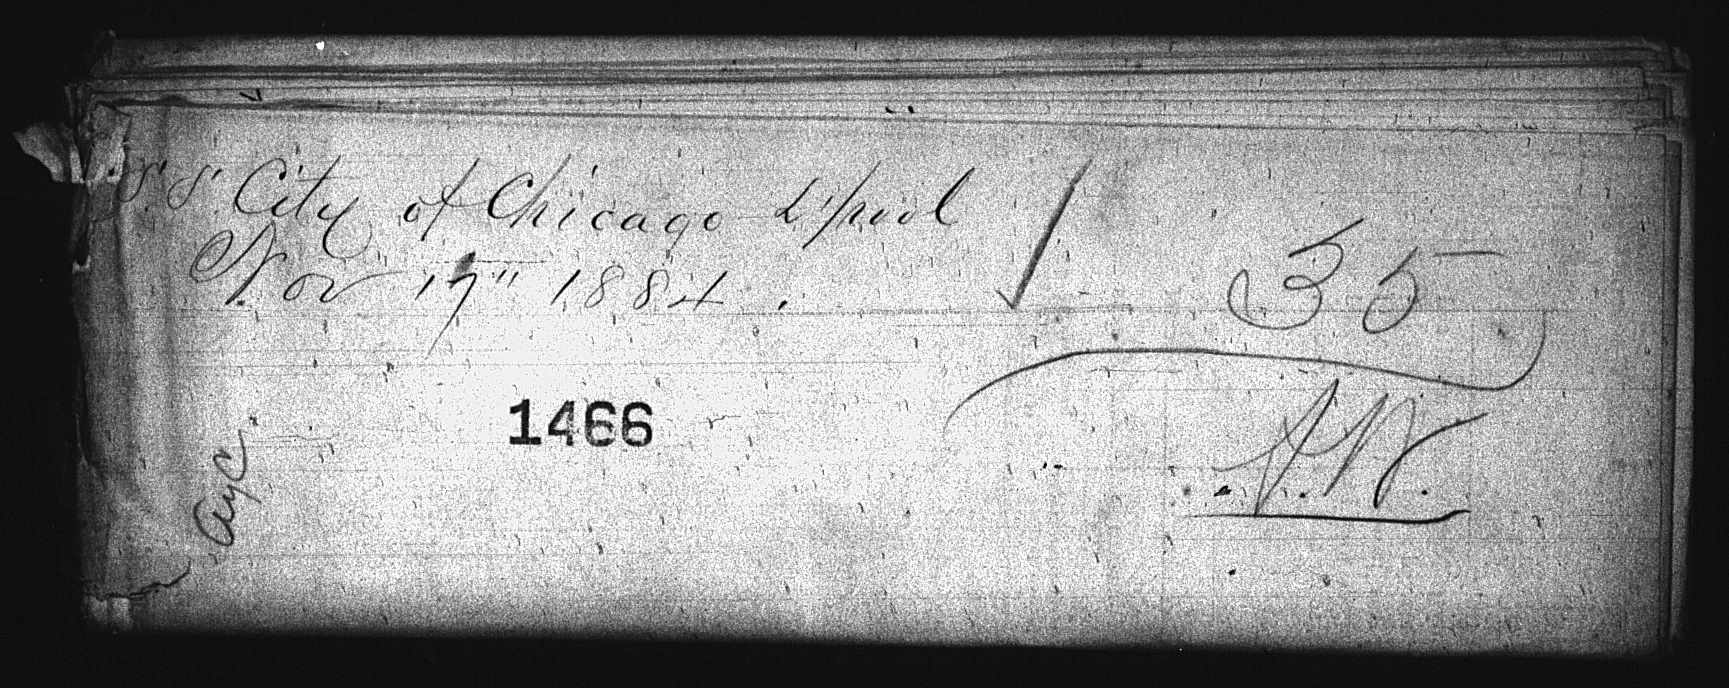 S.S. City of Chicago L'pool
Nov 17" 1884.
35
1466
ayc